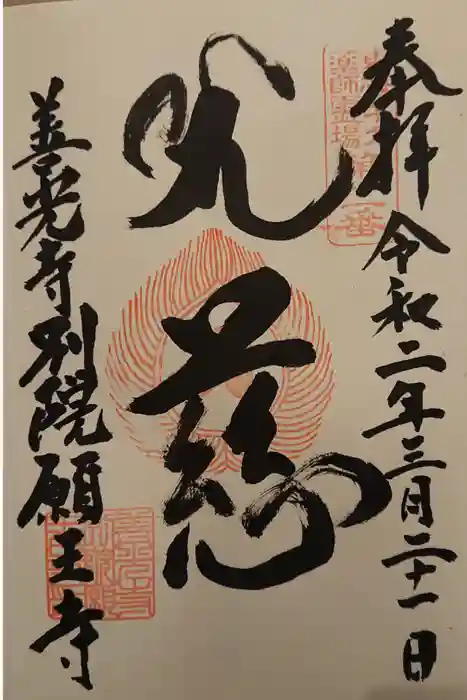 奉拝 令和二年三月二十一日
薬師霊場
光慈
善光寺別院願王寺